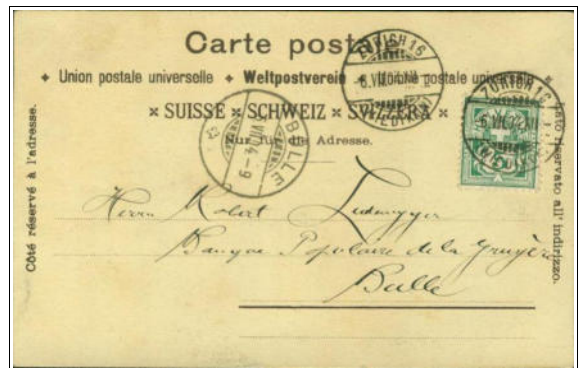 Carte postale
Union postale universelle + Weltpostverein + Unione postale universale
× SUISSE × SCHWEIZ × SVIZZERA ×
Nur für die Adresse.
Côté réservé à l'adresse.
Lato riservato all' indirizzo.
ZÜRICH 16
(WIEDIKON)
ZÜRICH 16
(WIEDIKON)
BULLE
VII 04 - 9
Herrn Robert
Banque Populaire de la Gruyère
Bulle